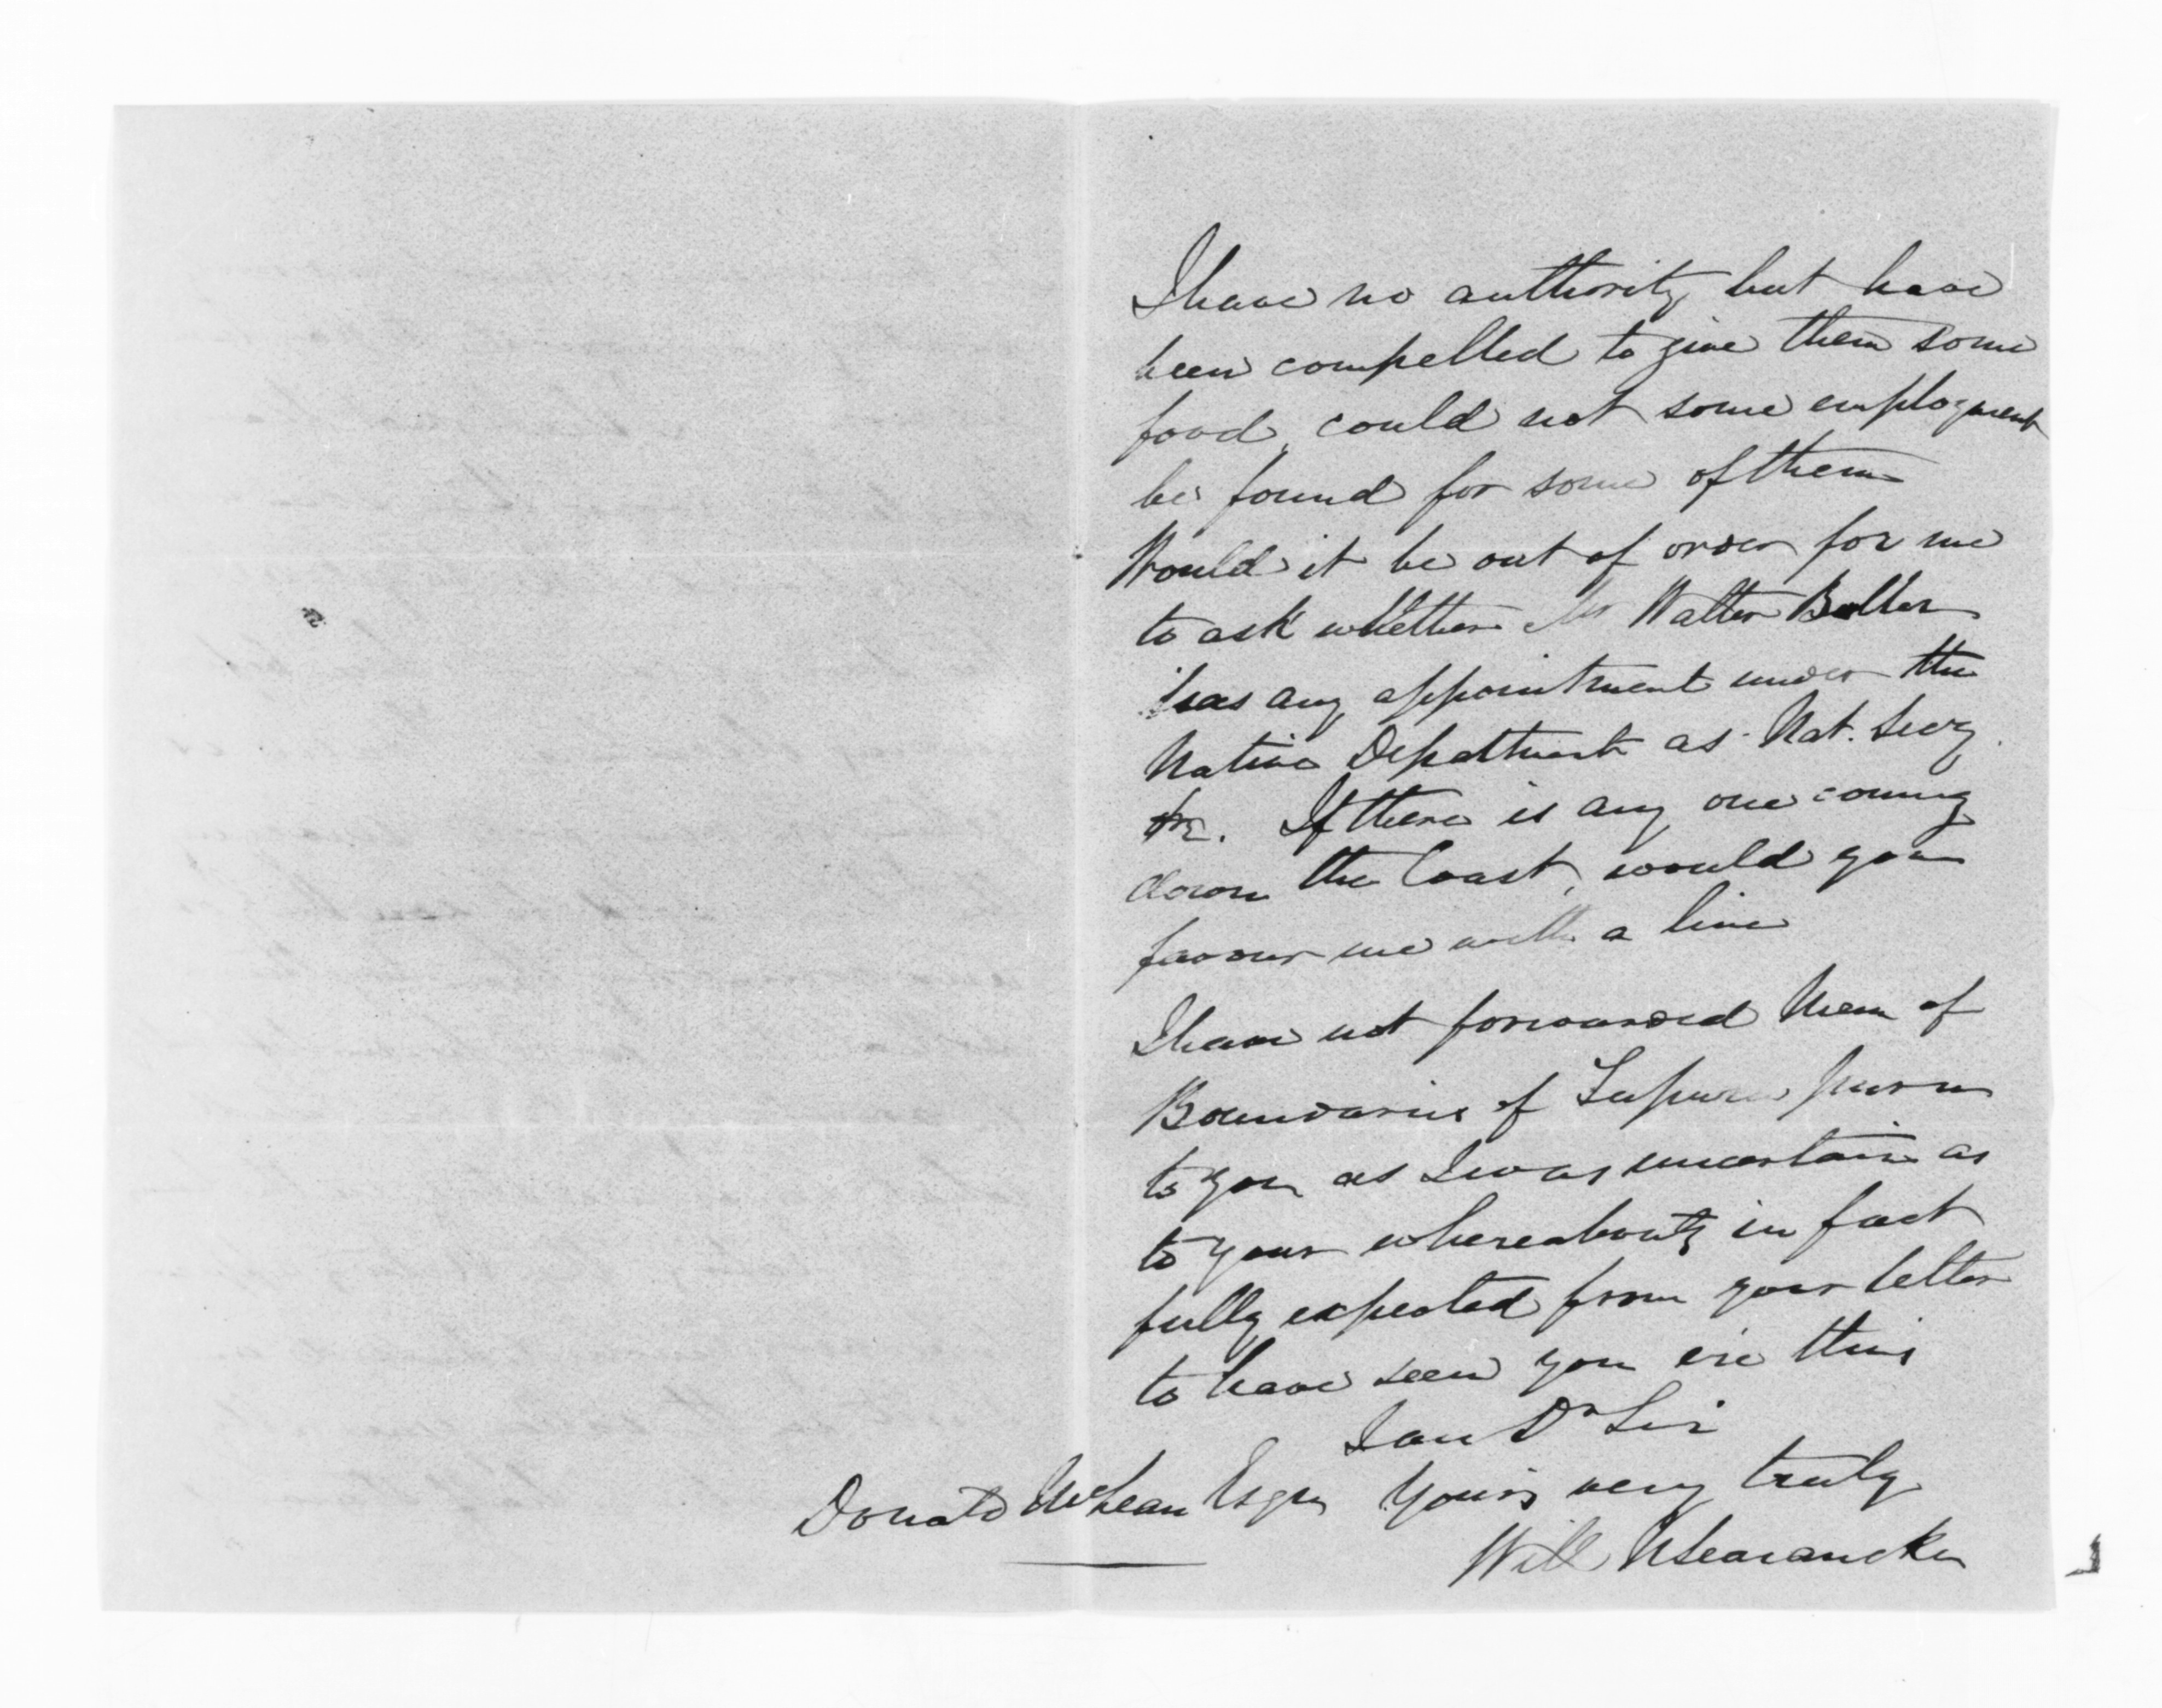 I have no authority but have
been compelled to give them some
food, could not some employment
be found for some of them
Would it be out of order for me
to ask whether Mr Walter Buller
has any appointment under the
Native Department as Nat. Secy.
&c. If there is any one coming
down the Coast, would you
favour me with a line
I have not forwarded Mem of
Boundaries of
to you as I was uncertain as
to your whereabouts in fact
fully expected from your letter
to have seen you ere this
I am Dr Sir
Donald McLean Esqre Yours very truly
Will N Searancke